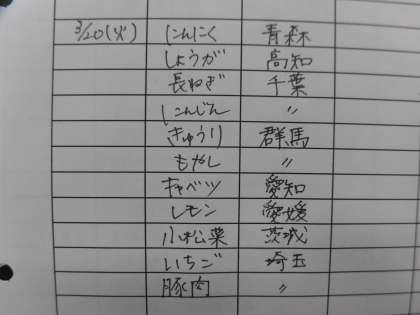 3/20(火) にんにく 青森
しょうが 高知
長ねぎ 千葉
にんじん 〃
きゅうり 群馬
もやし 〃
キャベツ 愛知
レモン 愛媛
小松菜 茨城
いちご 埼玉
豚肉 〃